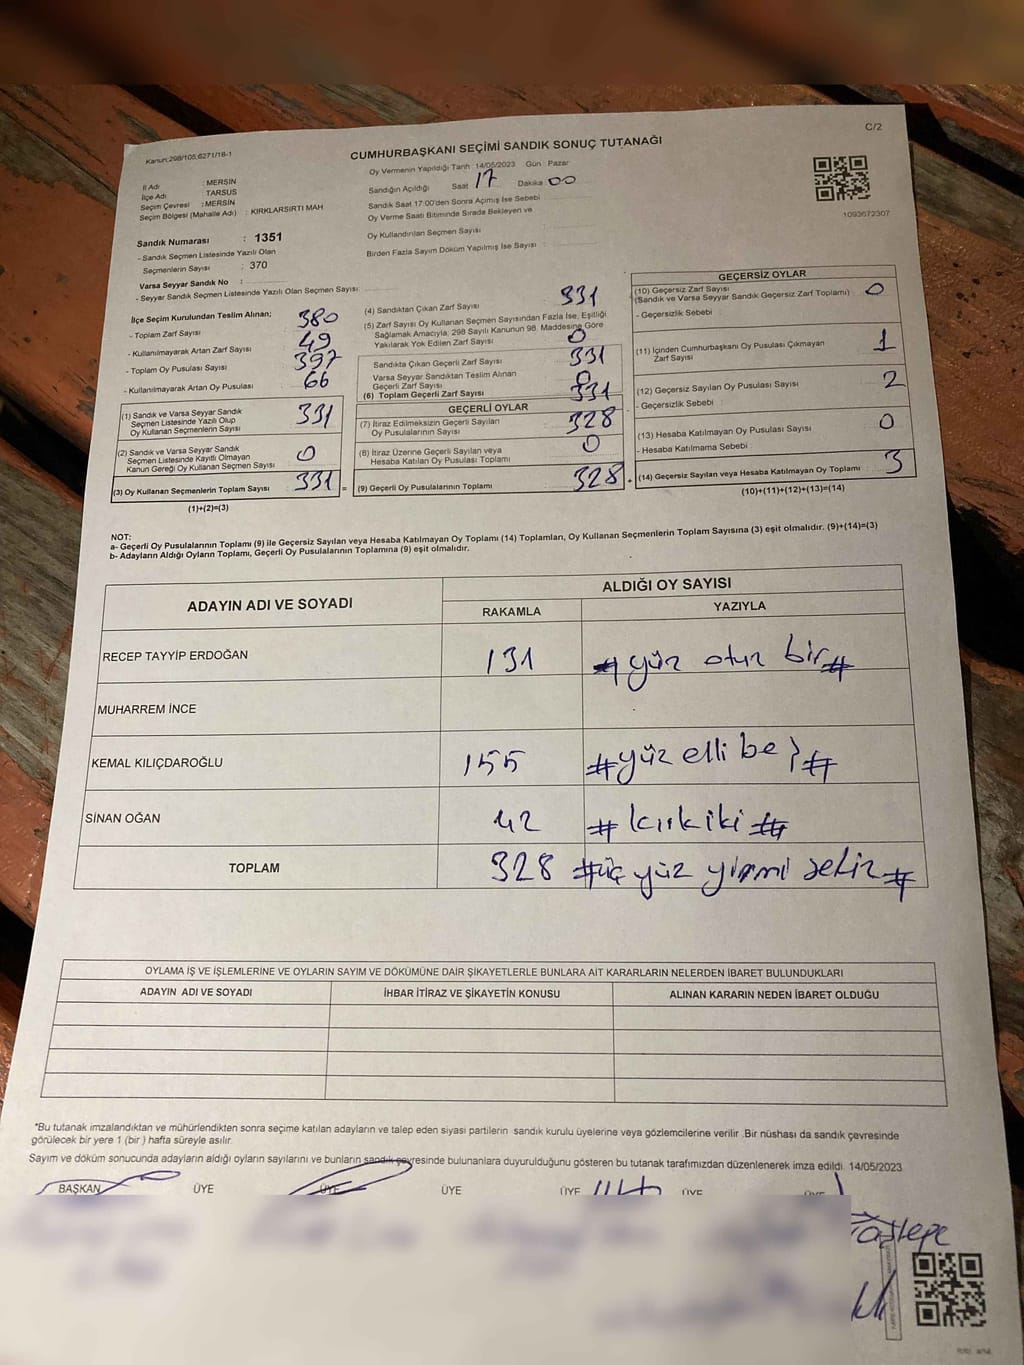 C/2
Kanun:298/105,6271/18-1
CUMHURBAŞKANI SEÇİMİ SANDIK SONUÇ TUTANAĞI
İl Adı : MERSIN
İlçe Adı : TARSUS
Seçim Çevresi : MERSİN
Seçim Bölgesi (Mahalle Adı) : KIRKLARSIRTI MAH
Sandık Numarası : 1351
- Sandık Seçmen Listesinde Yazılı Olan
Seçmenlerin Sayısı : 370
Varsa Seyyar Sandık No :
- Seyyar Sandık Seçmen Listesinde Yazılı Olan Seçmen Sayısı:
Oy Vermenin Yapıldığı Tarih :14/05/2023 Gün : Pazar
Sandığın Açıldığı Saat 17 Dakika 00
Sandık Saat 17:00'den Sonra Açımış İse Sebebi
Oy Verme Saati Bitiminde Sırada Bekleyen ve
Oy Kullandırılan Seçmen Sayısı
Birden Fazla Sayım Döküm Yapılmış İse Sayısı :
1093672307
İlçe Seçim Kurulundan Teslim Alınan;
- Toplam Zarf Sayısı 380
- Kullanılmayarak Artan Zarf Sayısı 49
- Toplam Oy Pusulası Sayısı 397
- Kullanılmayarak Artan Oy Pusulası 66
(1) Sandık ve Varsa Seyyar Sandık
Seçmen Listesinde Yazılı Olup
Oy Kullanan Seçmenlerin Sayısı 331
(2) Sandık ve Varsa Seyyar Sandık
Seçmen Listesinde Kayıtlı Olmayan
Kanun Gereği Oy Kullanan Seçmen Sayısı 0
(3) Oy Kullanan Seçmenlerin Toplam Sayısı 331 =
(1)+(2)=(3)
(4) Sandıktan Çıkan Zarf Sayısı 331
(5) Zarf Sayısı Oy Kullanan Seçmen Sayısından Fazla İse, Eşitliği
Sağlamak Amacıyla, 298 Sayılı Kanunun 98. Maddesine Göre
Yakılarak Yok Edilen Zarf Sayısı 0
Sandıkta Çıkan Geçerli Zarf Sayısı 331
Varsa Seyyar Sandıktan Teslim Alınan
Geçerli Zarf Sayısı 0
(6) Toplam Geçerli Zarf Sayısı 331
GEÇERLİ OYLAR
(7) İtiraz Edilmeksizin Geçerli Sayılan
Oy Pusulalarının Sayısı 328
(8) İtiraz Üzerine Geçerli Sayılan veya
Hesaba Katılan Oy Pusulası Toplamı 0
(9) Geçerli Oy Pusulalarının Toplamı 328 +
GEÇERSİZ OYLAR
(10) Geçersiz Zarf Sayısı
(Sandık ve Varsa Seyyar Sandık Geçersiz Zarf Toplamı) 0
- Geçersizlik Sebebi :
(11) İçinden Cumhurbaşkanı Oy Pusulası Çıkmayan
Zarf Sayısı 1
(12) Geçersiz Sayılan Oy Pusulası Sayısı 2
- Geçersizlik Sebebi :
(13) Hesaba Katılmayan Oy Pusulası Sayısı 0
- Hesaba Katılmama Sebebi :
(14) Geçersiz Sayılan veya Hesaba Katılmayan Oy Toplamı 3
(10)+(11)+(12)+(13)=(14)
NOT:
a- Geçerli Oy Pusulalarının Toplamı (9) ile Geçersiz Sayılan veya Hesaba Katılmayan Oy Toplamı (14) Toplamları, Oy Kullanan Seçmenlerin Toplam Sayısına (3) eşit olmalıdır. (9)+(14)=(3)
b- Adayların Aldığı Oyların Toplamı, Geçerli Oy Pusulalarının Toplamına (9) eşit olmalıdır.
ADAYIN ADI VE SOYADI
ALDIĞI OY SAYISI
RAKAMLA YAZIYLA
RECEP TAYYİP ERDOĞAN 131 # yüz otuz bir #
MUHARREM İNCE
KEMAL KILIÇDAROĞLU 155 # yüz elli beş #
SİNAN OĞAN 42 # kırkiki #
TOPLAM 328 # üç yüz yirmi sekiz #
OYLAMA İŞ VE İŞLEMLERİNE VE OYLARIN SAYIM VE DÖKÜMÜNE DAİR ŞİKAYETLERLE BUNLARA AİT KARARLARIN NELERDEN İBARET BULUNDUKLARI
ADAYIN ADI VE SOYADI İHBAR İTİRAZ VE ŞİKAYETİN KONUSU ALINAN KARARIN NEDEN İBARET OLDUĞU
*Bu tutanak imzalandıktan ve mühürlendikten sonra seçime katılan adayların ve talep eden siyasi partilerin sandık kurulu üyelerine veya gözlemcilerine verilir .Bir nüshası da sandık çevresinde
görülecek bir yere 1 (bir ) hafta süreyle asılır.
Sayım ve döküm sonucunda adayların aldığı oyların sayılarını ve bunların sandık çevresinde bulunanlara duyurulduğunu gösteren bu tutanak tarafımızdan düzenlenerek imza edildi. 14/05/2023
BAŞKAN ÜYE ÜYE ÜYE ÜYE ÜYE ÜYE